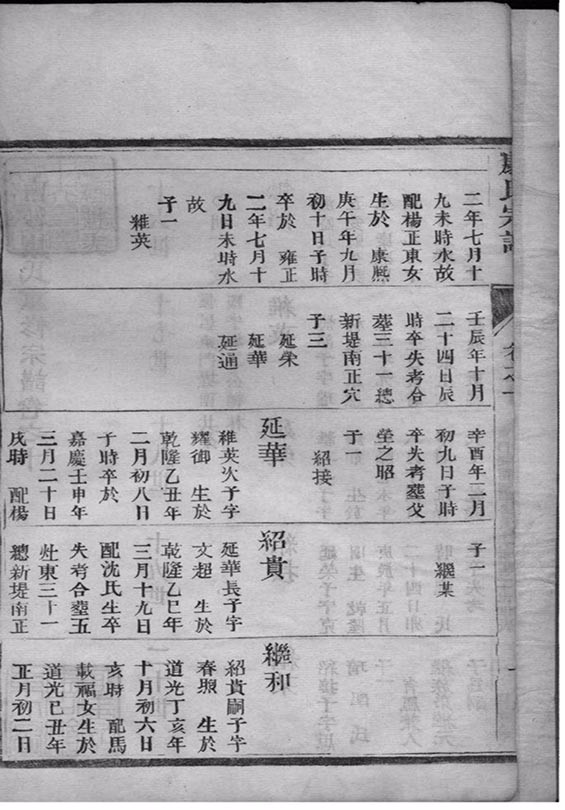 氏宗譜
卷之
二年七月十
九未時水故
配楊正東女
生於 康熙
庚午年九月
初十日子時
卒於 雍正
二年七月十
九日未時水
故
子一
維英
壬辰年十月
二十四日辰
時卒失考合
塟三十一總
新堤南正穴
子三
延榮
延華
延通
辛酉年二月
初九日子時
卒失考塟父
塋之昭
子一
紹接
延華
維英次子字
耀御 生於
乾隆乙丑年
二月初八日
子時卒於
嘉慶壬申年
三月二十日
戌時 配楊
子一
繼某
紹貴
延華長子字
文超 生於
乾隆乙巳年
三月十九日
配沈氏生卒
失考合塟五
灶東三十一
總新堤南正
繼和
紹貴嗣子字
春照 生於
道光丁亥年
十月初六日
亥時 配馬
載福女生於
道光己丑年
正月初二日